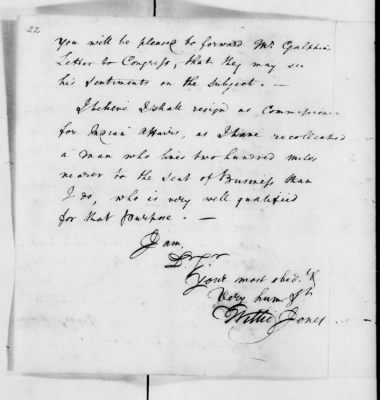 22
you will be pleased to forward Mr Galphin's
Letter to Congress, that they may see
his Sentiments on the subject. —
I believe I shall resign as Commissioner
for Indian Affairs, as I have recollected
a man who lives two hundred miles
nearer to the Seat of Business than
I do, who is very well qualified
for that Purpose. —
I am,
Dr Sr
Your most obed.t &
Very hum St
Willie Jones